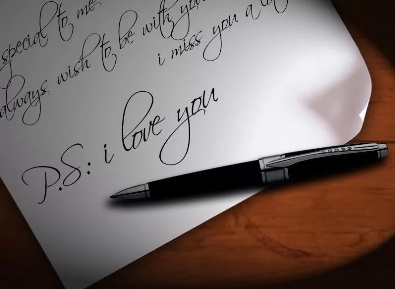 special to me.
always wish to be with you
i miss you a
P.S: i love you